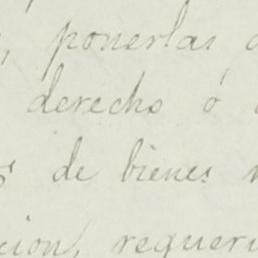 , ponerlas
derecho ó
s de bienes
cion, requeri